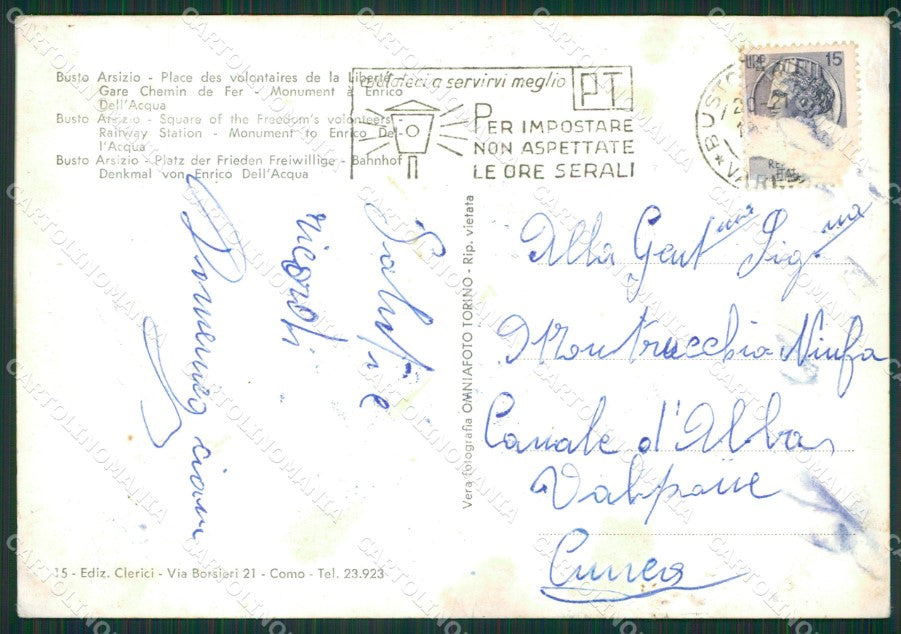 Busto Arsizio - Place des volontaires de la Liberté -
Gare Chemin de Fer - Monument à Enrico
Dell'Acqua
Busto Arsizio - Square of the Freedom's volonteers -
Railway Station - Monument to Enrico Del-
l'Acqua
Busto Arsizio - Platz der Frieden Freiwillige - Bahnhof
Denkmal von Enrico Dell'Acqua
a servirvi meglio
PT
PER IMPOSTARE
NON ASPETTATE
LE ORE SERALI
BUSTO
15
Saluti e
ricordi
Domenico
Vera fotografia OMNIAFOTO TORINO - Rip. vietata
Alla Gent.ma Sig.na
Montrucchio Ninfa
Canale d'Alba
Valpone
Cuneo
15 - Ediz. Clerici - Via Borsieri 21 - Como - Tel. 23.923
CARTOLINOMANIA